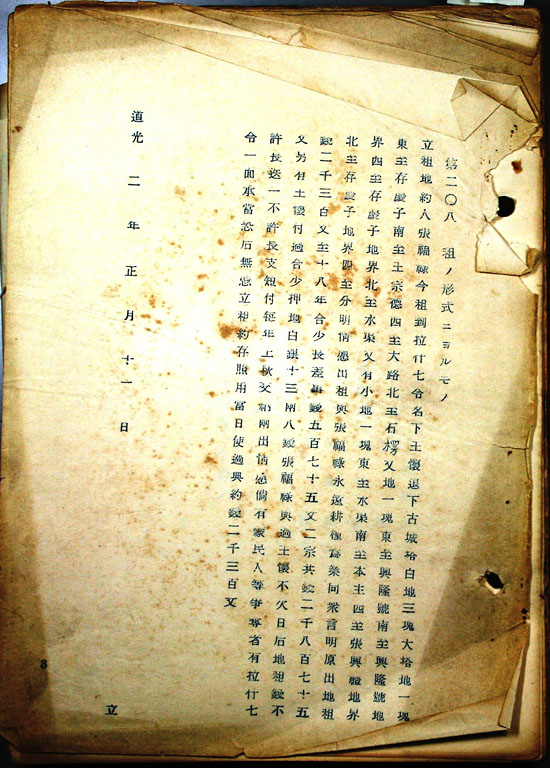 第二〇八　租ノ形式ニヨルモノ
立租地約人張福祿今租到拉什七令名下土儍退下古城咍白地三塊大塔地一塊
東至存慶子南至王宗德四至大路北至石楞又地一塊東至興隆號南至興隆號地
界四至存慶子地界北至水渠又有小地一塊東至水渠南至本主四至張興龍地界
北至存慶子地界四至分明情愿出租與張福祿永遠耕種為業同衆言明原出地租
錢二千三百文至十八年合少長差事錢五百七十五文二宗共錢二千八百七十五
文另有土儍付過合少押地白銀十三兩八錢張福祿與過土儍不欠日后地租錢不
許長迭一不許長支短付每年上秋交納兩出情愿倘有蒙民人等爭奪省有拉什七
令一面承當恐后無憑立租約存照用當日使過與約錢二千三百文
道光二年正月十一日
立
8